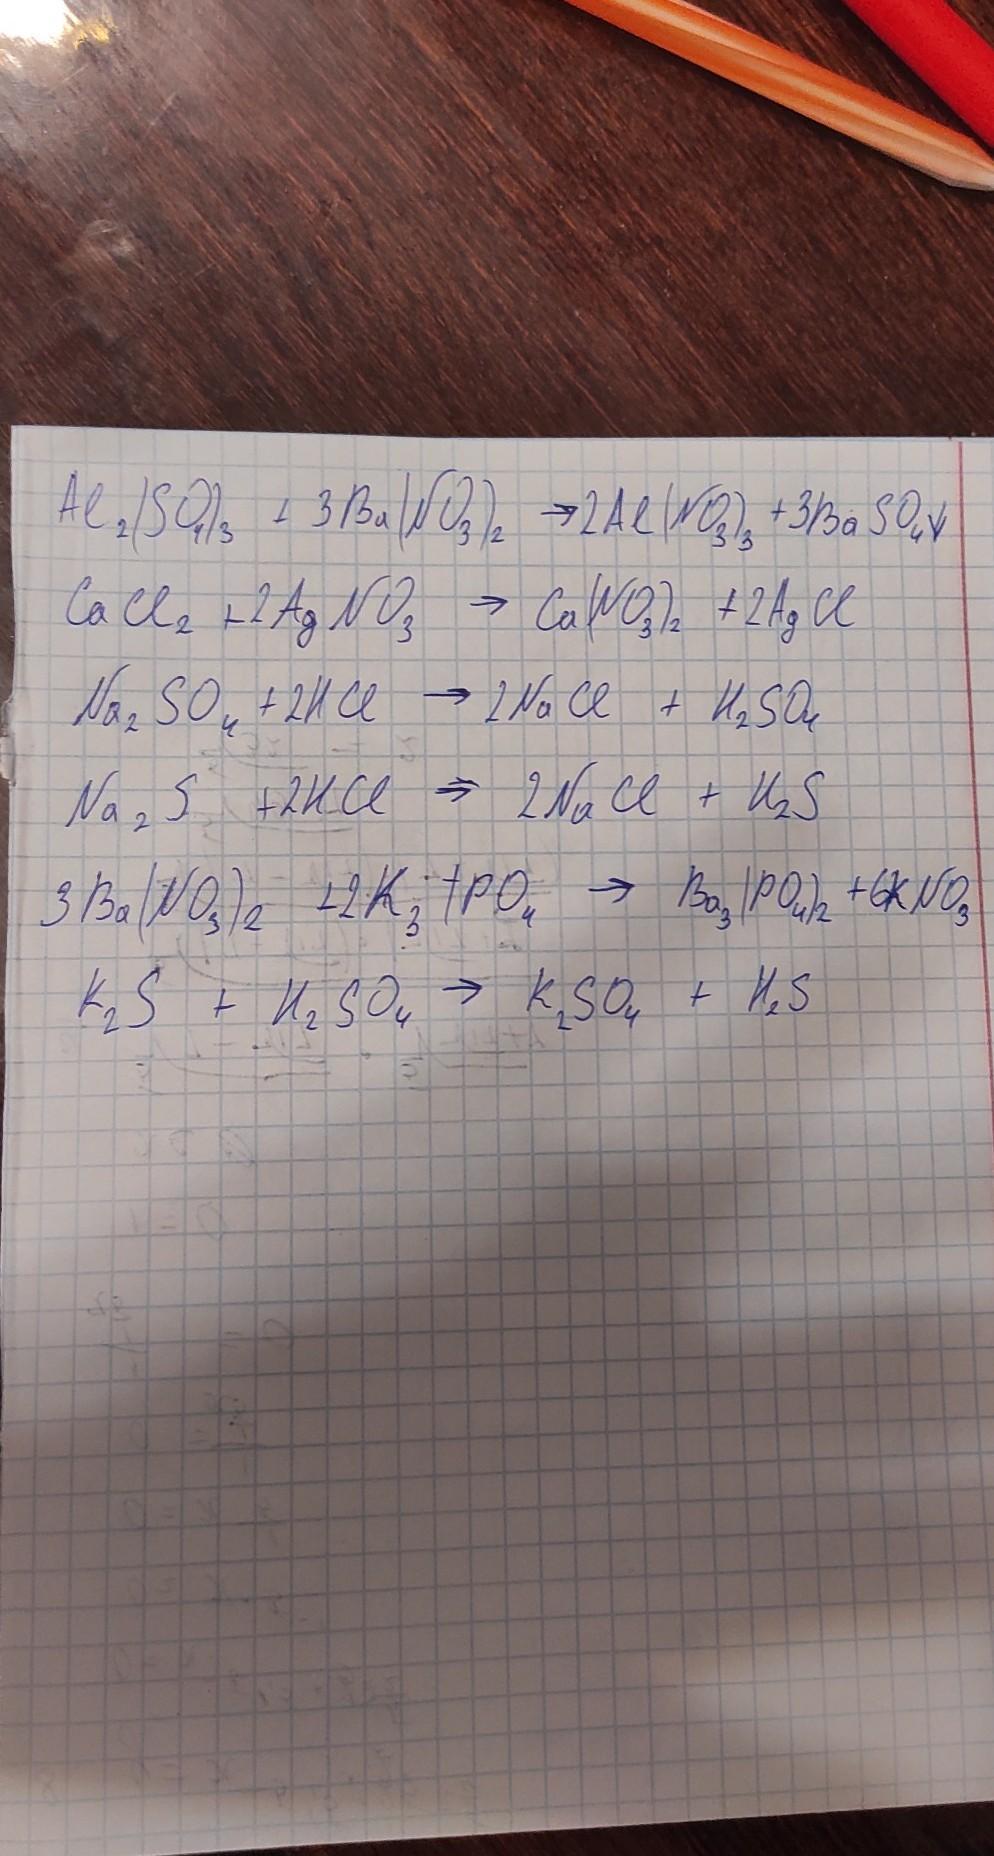 Al₂(SO₄)₃ + 3Ba(NO₃)₂ → 2Al(NO₃)₃ + 3BaSO₄↓
CaCl₂ + 2AgNO₃ → Ca(NO₃)₂ + 2AgCl
Na₂SO₄ + 2HCl → 2NaCl + H₂SO₄
Na₂S + 2HCl ⇒ 2NaCl + H₂S
3Ba(NO₃)₂ + 2K₃PO₄ → Ba₃(PO₄)₂ + 6KNO₃
K₂S + H₂SO₄ → K₂SO₄ + H₂S